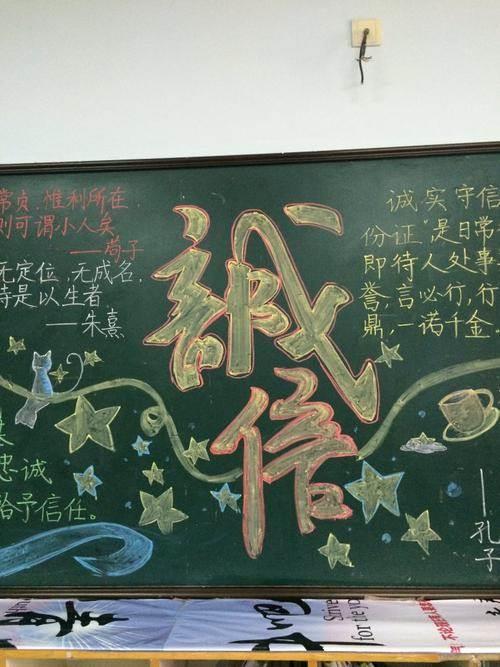 常贞,惟利所在
则可谓小人矣
——荀子
无定位,无成名,
恃是以生者
——朱熹
誠信
诚实守信
份证,是日常
即待人处事
誉,言必行,行
鼎,一诺千金
忠诚
给予信任。
——孔子
Since
for the yo